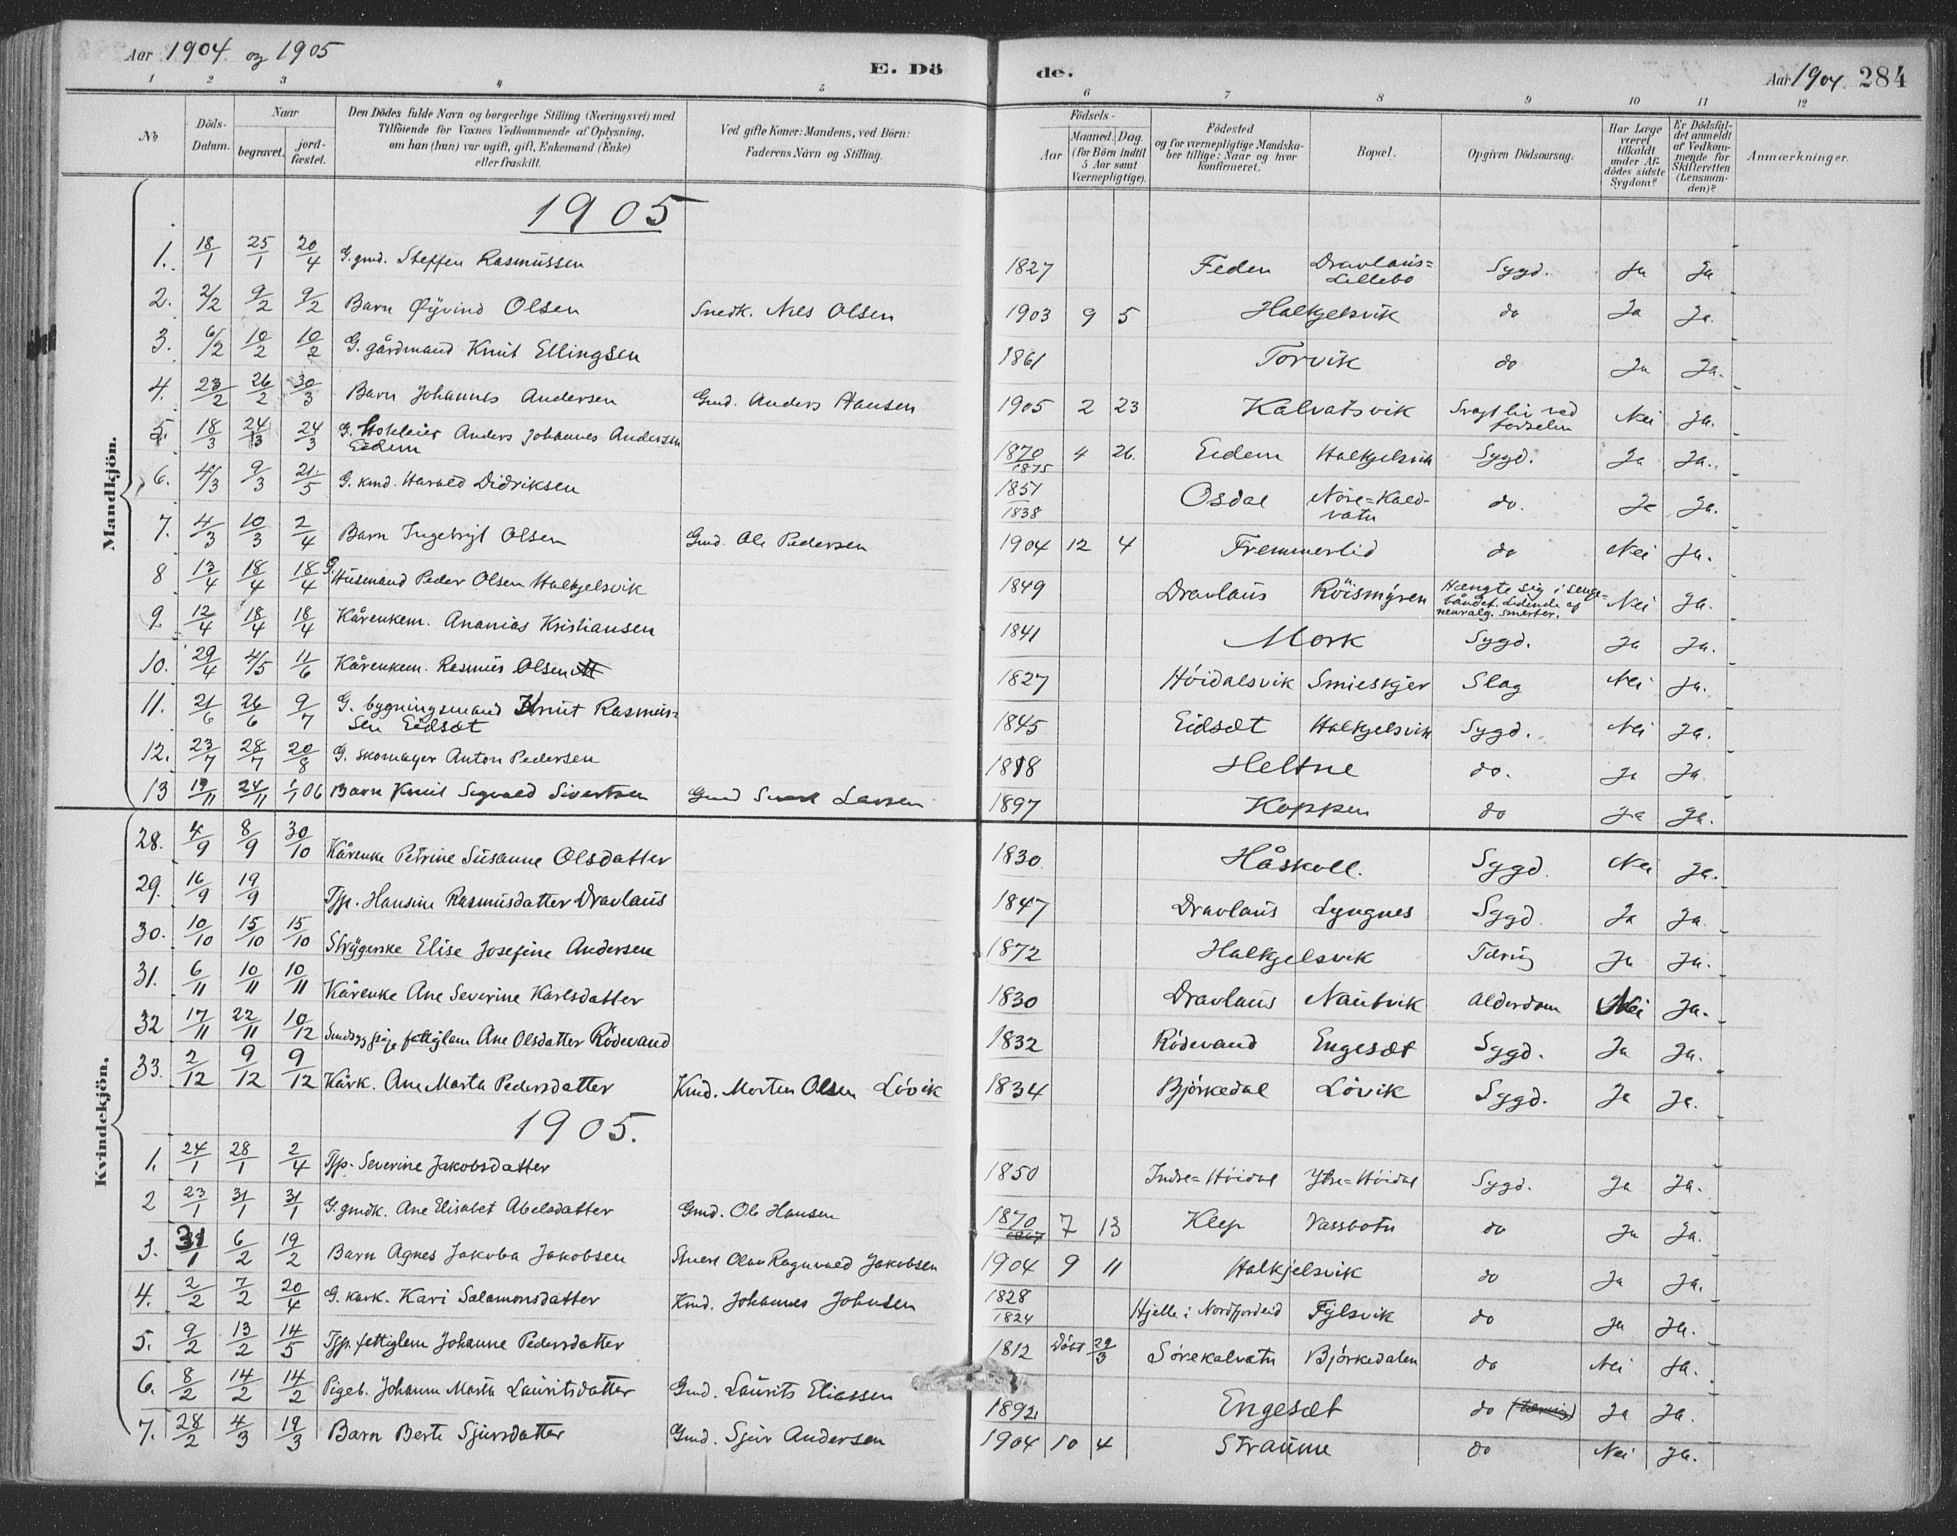 Aar 1904 og 1905
E. Dö de.
Aar 1904. 284
1 2 3 4 5 6 7 8 9 10 11 12
No
Döds-Datum.
Naar
begravet.
jord-fæstet.
Den Dödes fulde Navn og borgerlige Stilling (Næringsvei) med
Tilföiende for Voxnes Vedkommende af Oplysning,
om han (hun) var ugift, gift, Enkemand (Enke)
eller fraskilt.
Ved gifte Koner: Mandens, ved Börn:
Faderens Navn og Stilling.
Födsels-
Aar
Maaned. Dag.
(for Börn indtil
5 Aar samt
Værnepligtige).
Födested
og for værnepligtige Mandska-
ber tillige: Naar og hvor
konfirmeret.
Bopæl.
Opgiven Dödsaarsag.
Har Læge
været
tilkaldt
under Af-
dödes sidste
Sygdom?
Er Dödsfal-
det anmeldt
af Vedkom-
mende for
Skifteretten
(Lensman-
den)?
Anmærkninger.
Mandkjön.
1905
1. 18/1 25/1 20/4 G. gmd. Steffen Rasmussen 1827 Feden Dravlaus=Lillebø Sygd. Ja Ja
2. 2/2 9/2 9/2 Barn Øyvind Olsen Snedk. Nils Olsen 1903 9 5 Halkjelsvik do Ja Ja.
3. 6/2 10/2 10/2 G. gårdmand Knut Ellingsen 1861 Torvik do Ja Ja.
4. 23/2 26/2 30/3 Barn Johannes Andersen Gmd. Anders Hansen 1905 2 23 Kalvatsvik Svagt liv ved fødselen Nei Ja.
5. 18/3 24/3 24/3 G. Anders Johannes Andersen Eidem 1870/1875 4 26 Eidem Halkjelsvik Sygd. Ja Ja.
6. 4/3 9/3 21/5 G. kmd. Harald Didriksen 1851/1838 Osdal Nöre=Kaldvatn do. Ja Ja.
7. 4/3 10/3 2/4 Barn Ingebrigt Olsen Gmd. Ole Pedersen 1904 12 4 Fremmerlid do Nei Ja.
8 13/4 18/4 18/4 G. Husmand Peder Olsen Halkjelsvik 1849 Dravlaus Röismyren Hængte sig i senge-båndet. Lidende af nevralg. smerter. Nei Ja.
9. 12/4 18/4 18/4 Kårenkem. Ananias Kristiansen 1841 Mork Sygd. Ja Ja.
10. 29/4 4/5 11/6 Kårenkem. Rasmus Olsen 1827 Höidalsvik Smieskjer Slag Nei Ja.
11. 21/6 26/6 9/7 G. bygningsmand Knut Rasmus=
sen Eidsæt 1845 Eidsæt Halkjelsvik Sygd. Nei Ja.
12. 23/7 28/7 20/8 G. skomager Anton Pedersen 1818 Heltne do. Ja Ja.
13 19/11 24/11 1/1 06 Barn Knut Sigvald Sivertsen Gmd Larsen 1897 Koppen do Ja Ja.
Kvindekjön.
28. 4/9 8/9 30/10 Kårenke Petrine Susanne Olsdatter 1830 Håskoll. Sygd. Nei Ja.
29. 16/9 19/9 Tjp. Hansine Rasmusdatter Dravlaus 1847 Dravlaus Lyngnes Sygd. Ja Ja.
30. 10/10 15/10 15/10 Strygerske Elise Josefine Andersen 1872 Halkjelsvik Tæring Ja Ja.
31. 6/11 10/11 10/11 Kårenke Ane Severine Karlsdatter 1830 Dravlaus Nautvik Alderdom Nei Ja.
32 17/11 22/11 10/12 fattiglem Ane Olsdatter Rödevand 1832 Rödevand Engesæt Sygd. Ja Ja.
33. 2/12 9/12 9/12 Kårk. Ane Marta Pedersdatter Kmd. Morten Olsen Lövik 1834 Björkedal Lövik Sygd. Ja Ja.
1905.
1. 24/1 28/1 2/4 Tjp. Severine Jakobsdatter 1850 Indre=Höidal Ytre=Höidal Sygd. Ja Ja.
2 23/1 31/1 31/1 G. gmdk. Ane Elisabet Abelsdatter Gmd. Ole Hansen 1870/1867 7 13 Klep Vassbotn do Ja Ja.
3. 31/1 6/2 19/2 Barn Agnes Jakoba Jakobsen Olav Ragnvald Jakobsen 1904 9 11 Halkjelsvik do Ja Ja.
4. 2/2 7/2 20/4 G. kårk. Kari Salamonsdatter Kmd. Johannes Johnsen 1828/1824 Hjelle i Nordfjordeid Fylsvik do Ja Ja.
5. 9/2 13/2 14/5 Tjp. fattiglem Johanne Pedersdatter 1812 Döbt 29/3 Sörekalvatn Björkedalen do Nei Ja.
6. 8/2 14/2 14/2 Pigeb. Johanne Marta Lauritsdatter Gmd. Laurits Eliassen 1892 Engesæt do (tæring) Ja Ja.
7. 28/2 4/3 19/3 Barn Berte Sjursdatter Gmd. Sjur Andersen 1904 10 4 Straume do Nei Ja.